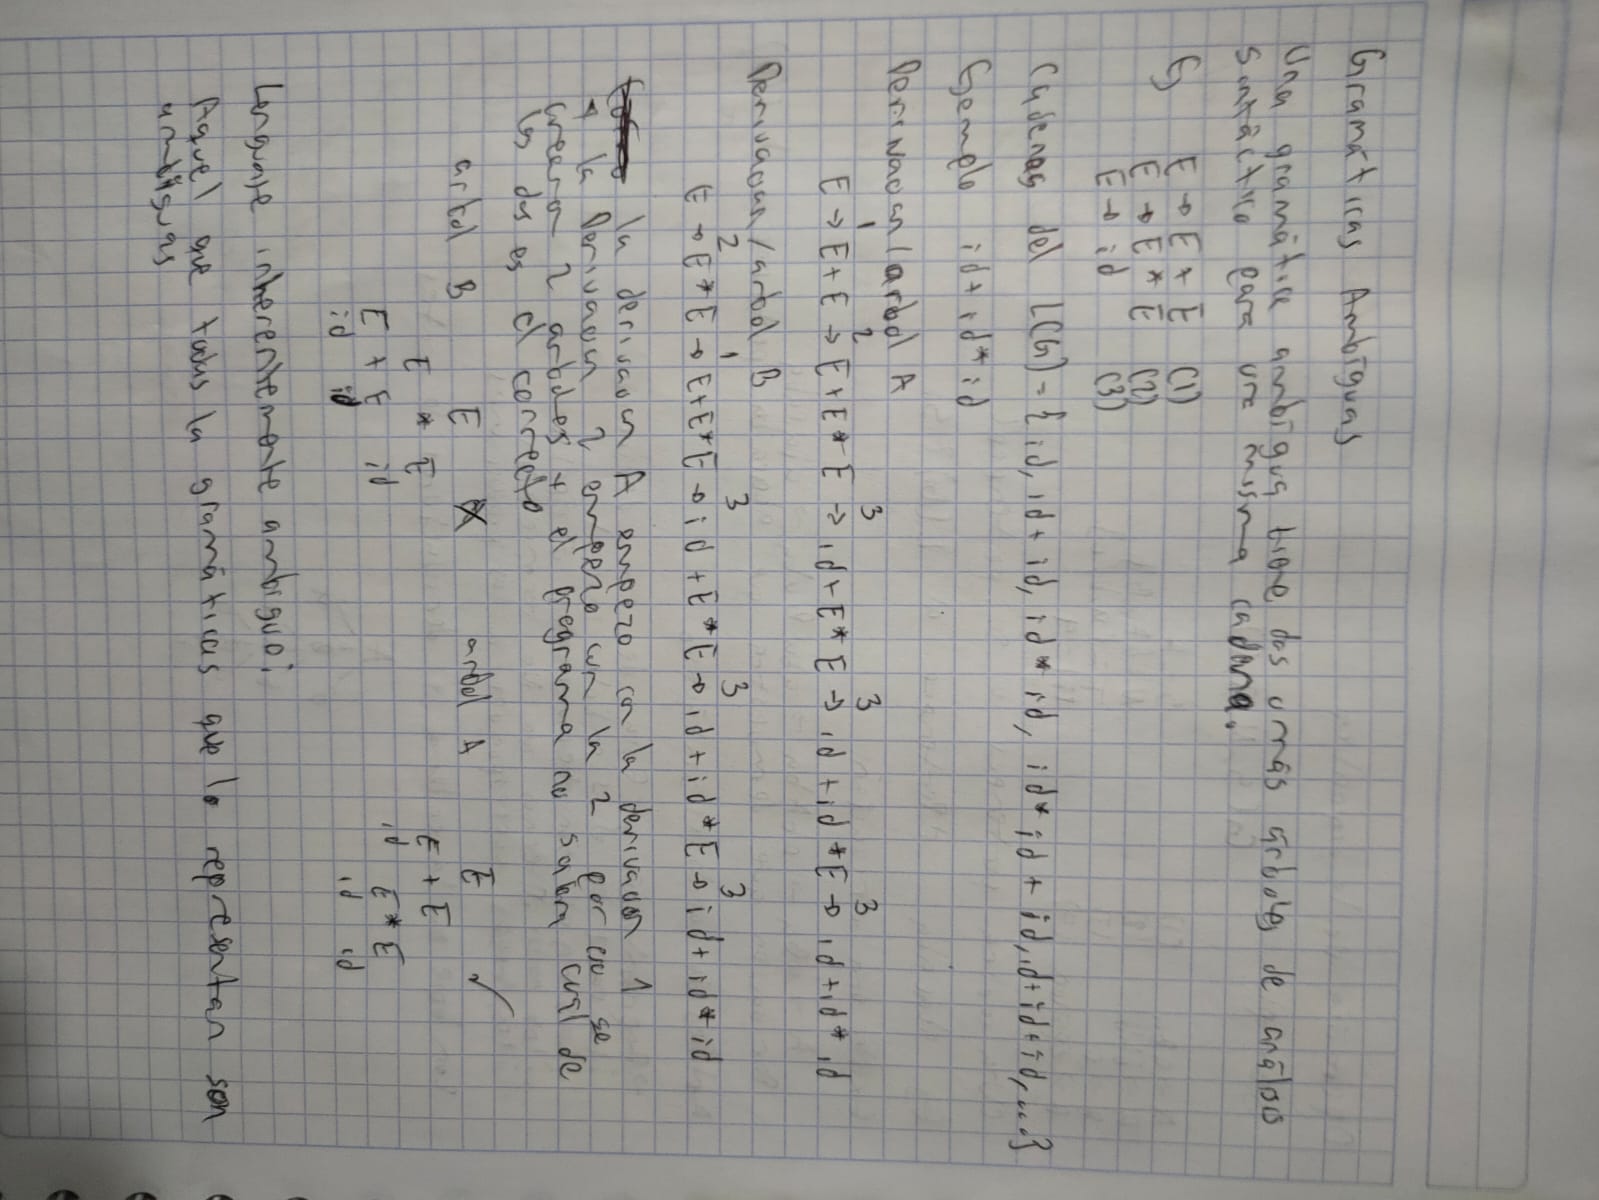 Gramáticas Ambiguas
Una gramática ambigua tiene dos o más árboles de análisis
Sintáctico para una misma cadena.
G E → E + E (1)
E → E * E (2)
E → id (3)
Cadenas del L(G) = { id, id + id, id * id, id * id + id, id+id+id,...}
Ejemplo id + id * id
Derivación/arbol A
1 2 3 3 3
E → E + E → E + E * E → id + E * E → id + id * E → id + id * id
Derivación/arbol B
2 1 3 3 3
E → E * E → E + E * E → id + E * E → id + id * E → id + id * id
la derivación A empezo con la derivación 1
y la Derivación 2 empezo con la 2 por eso se
crearon 2 arboles y el programa no sabra cuál de
los dos es el correcto
arbol B E X arbol A E ✓
E * E E + E
E + E id id E * E
id id id id
Lenguaje inherentemente ambiguo:
Aquel que todas la gramáticas que lo representan son
ambiguas